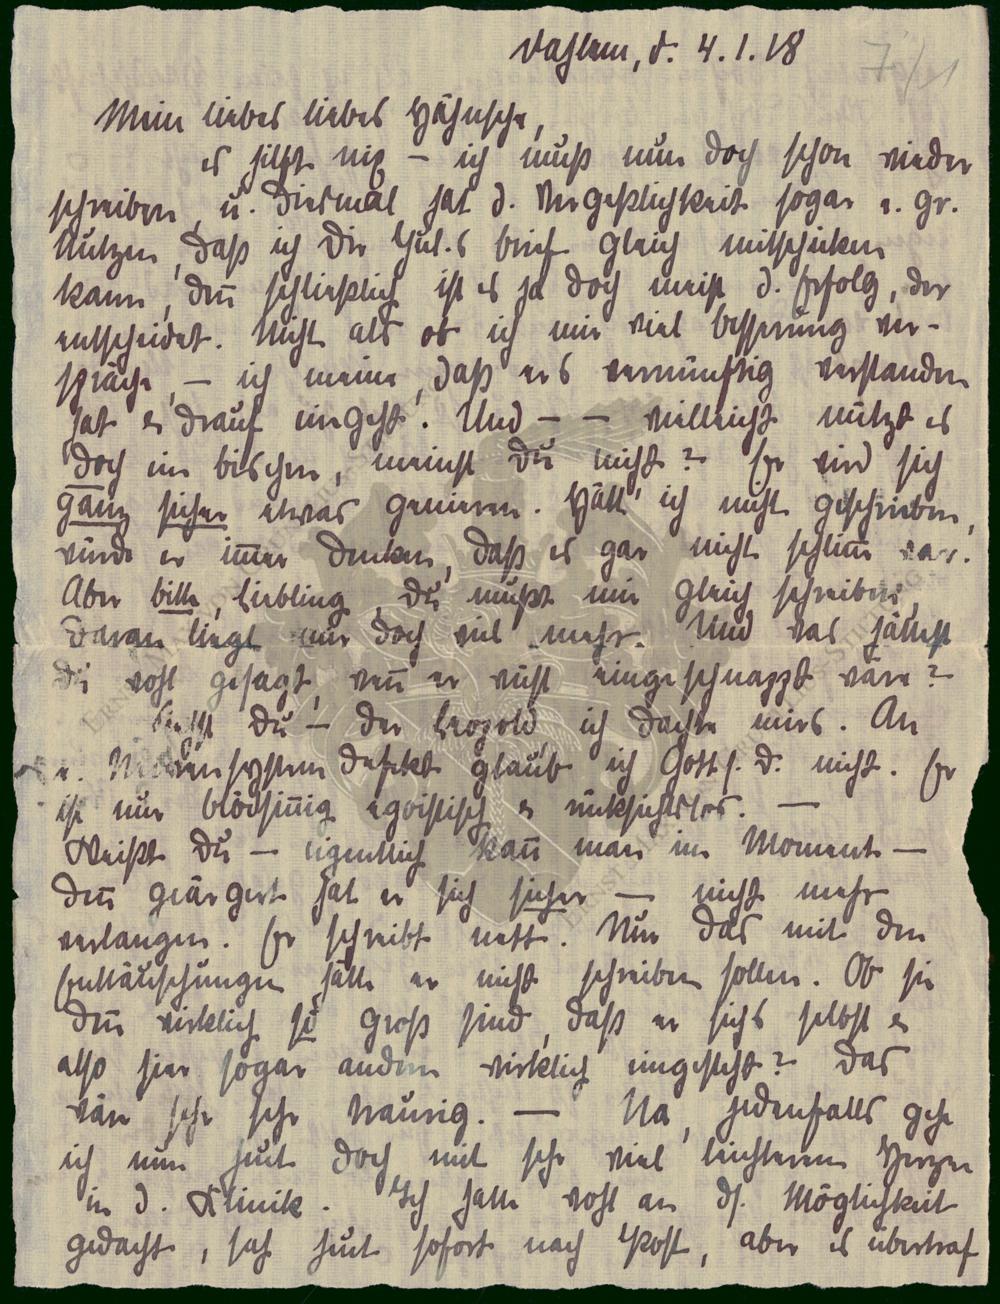 Dahlem, d. 4.1.18
7/1
Mein liebes liebes Hähnsche,
es hilft nix – ich muß nun doch schon wieder
schreiben u. diesmal hat d. Vergeßlichkeit sogar e. gr.
Nutzen, daß ich Dir Jul.s brief gleich mitschicken
kann, den̄ schließlich ist es ja doch meist d. Erfolg, der
entscheidet. Nicht als ob ich mir viel besserung ver-
spräche, – ich meine, daß ers vernünftig verstanden
hat & drauf eingeht. Und – – vielleicht nützt es
doch ein bischen, meinst Du nicht? Er wird sich
ganz sicher etwas genieren. Hätt' ich nicht geschrieben,
würde er im̄er denken, daß es gar nicht schlim̄ war.
Aber bitte, Liebling, Du mußt mir gleich schreiben,
daran liegt mir doch viel mehr. Und was hättest
Du wohl gesagt, wen̄ er nicht eingeschnappt wäre?
Siehst Du – der Leopold, ich dachte mirs. An
e. Nervensystem defekt glaub ich Gott s. d. nicht. Er
ist nur blödsin̄ig egoistisch & rücksichtslos. —
Weißt Du – eigentlich kan̄ man im Moment –
den̄ geärgert hat er sich sicher – nicht mehr
verlangen. Er schreibt nett. Nur das mit den
Enttäuschungen hätte er nicht schreiben sollen. Ob sie
den̄ wirklich so groß sind, daß er sichs selbst &
also hier sogar andern wirklich eingesteht? Das
wär sehr sehr traurig. — Na, jedenfalls gehe
ich nun heut doch mit sehr viel leichterem Herzen
in d. Klinik. Ich hatte wohl an ds. Möglichkeit
gedacht, sah heut sofort nach Post, aber es übertraf